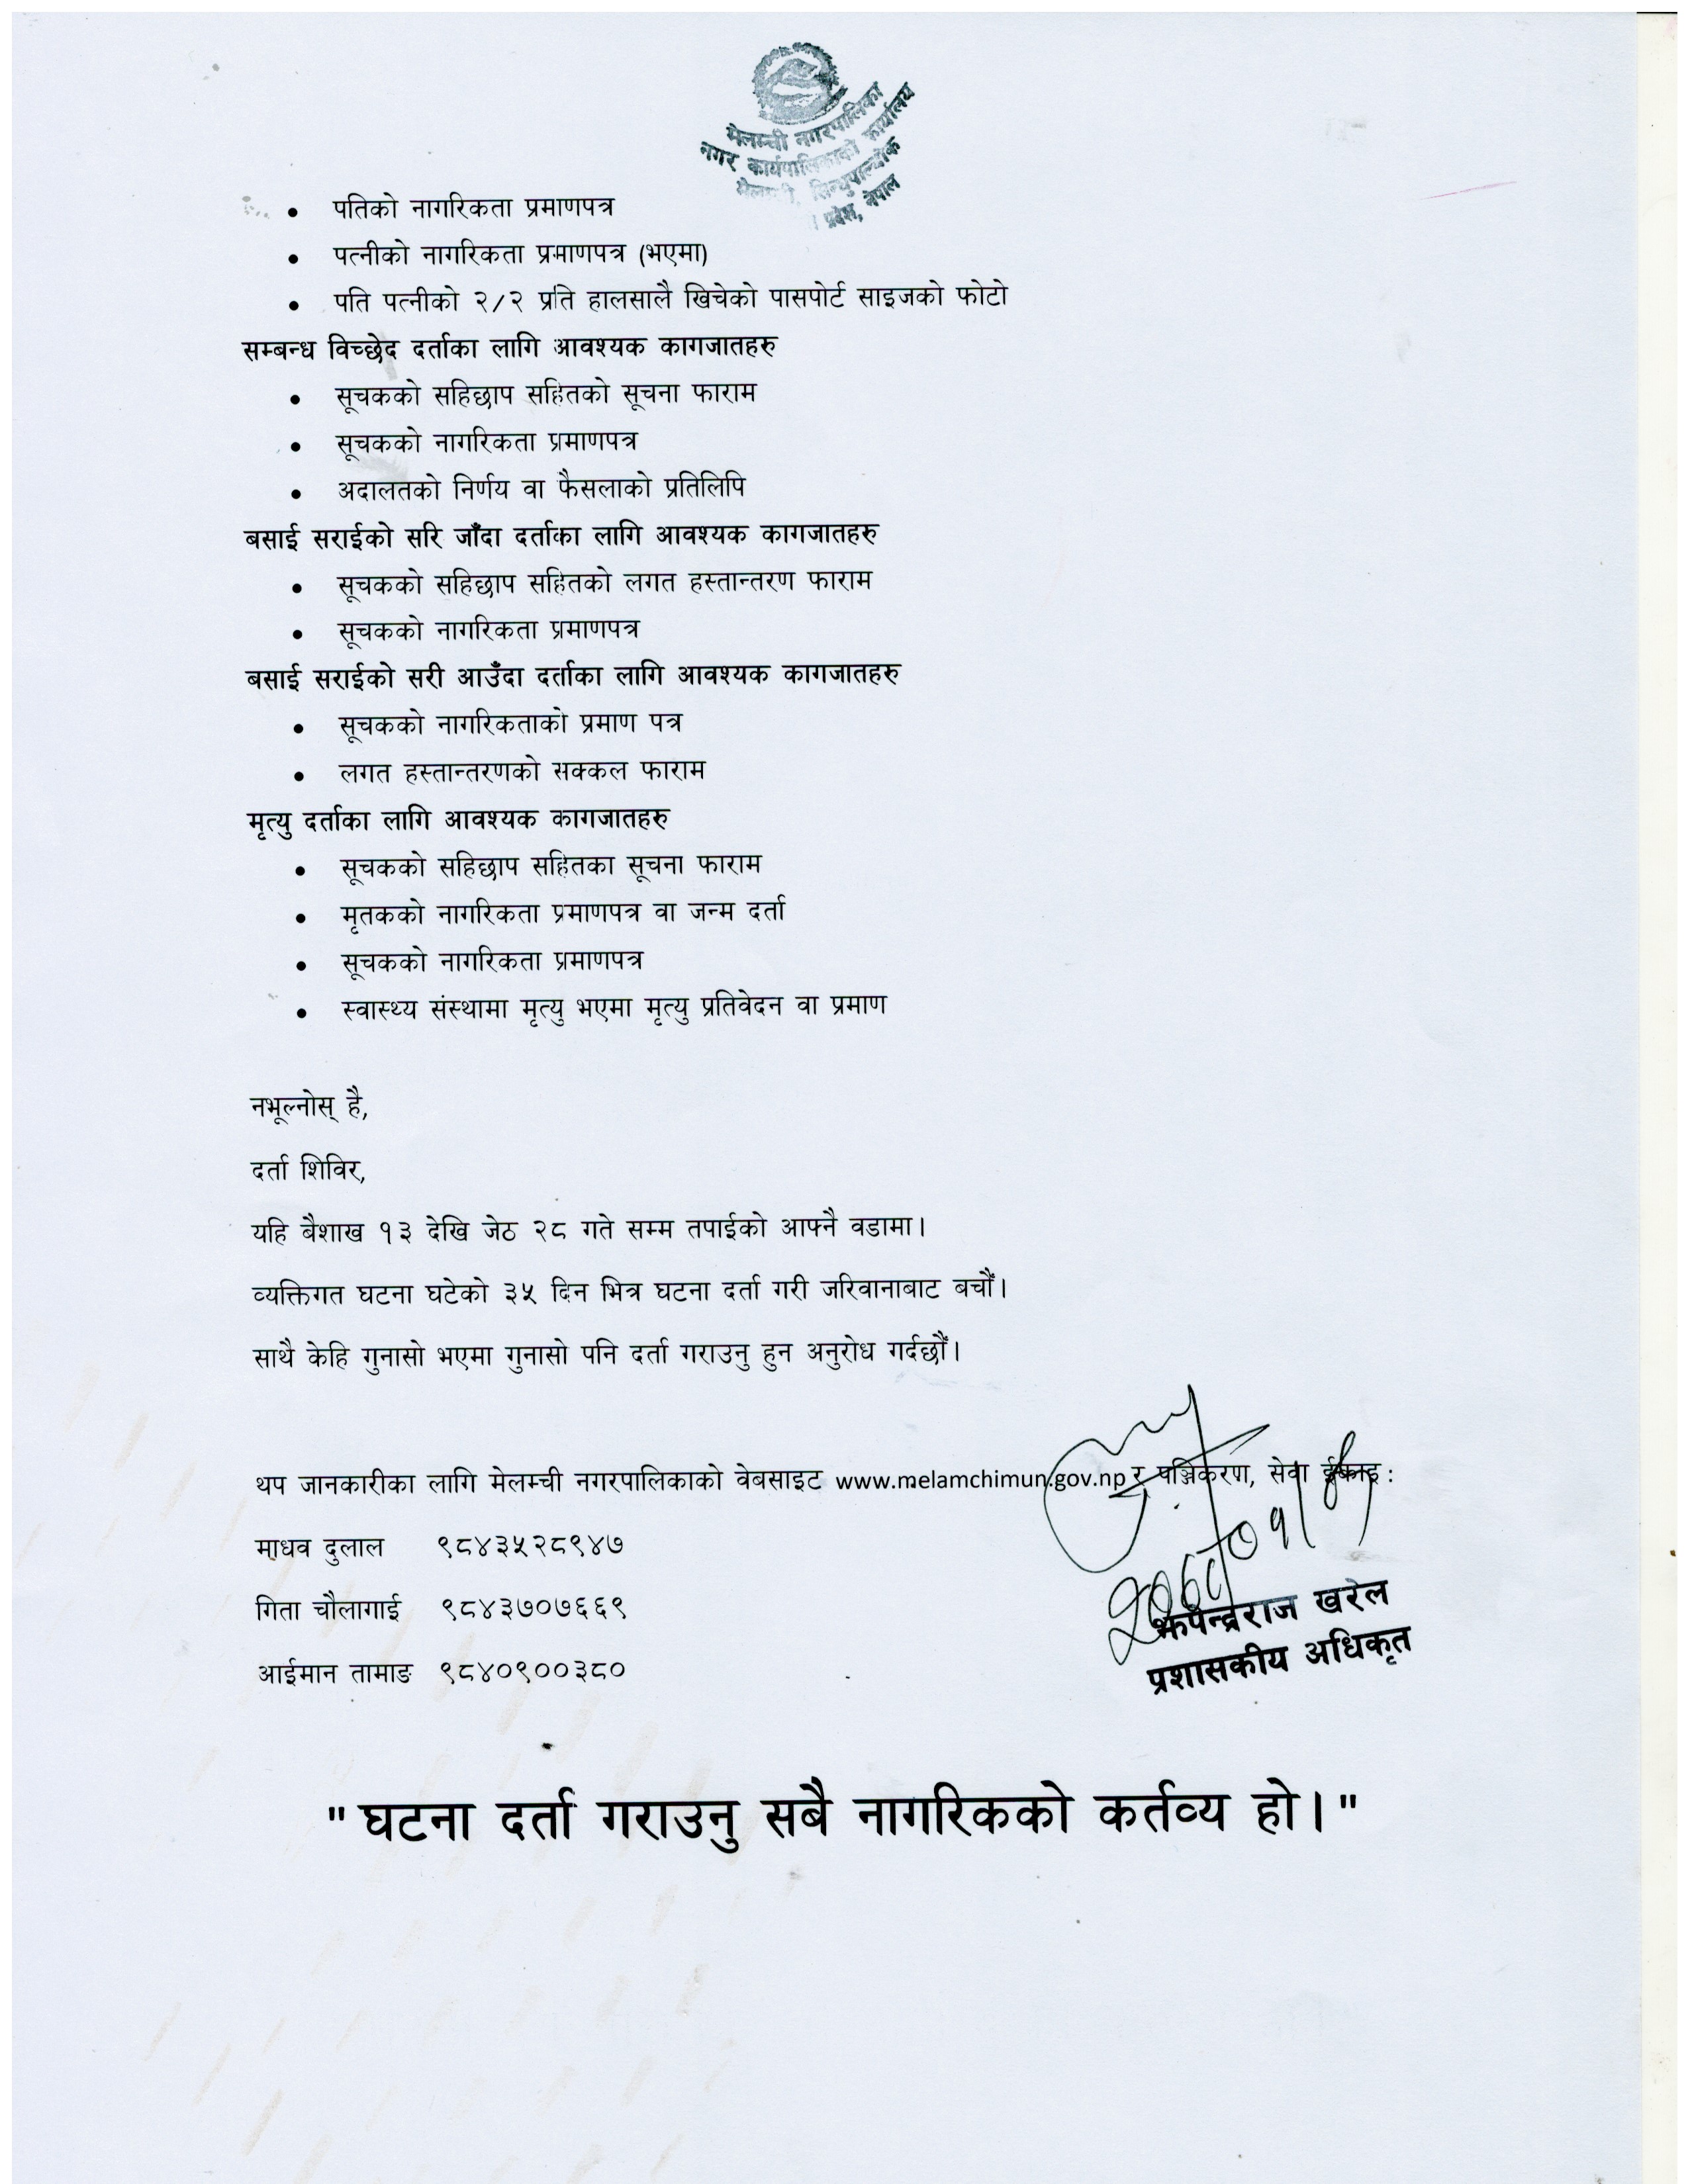 मेलम्ची नगरपालिका
नगर कार्यपालिकाको कार्यालय
सिन्धुपाल्चोक
प्रदेश, नेपाल
• पतिको नागरिकता प्रमाणपत्र
• पत्नीको नागरिकता प्रमाणपत्र (भएमा)
• पति पत्नीको २/२ प्रति हालसालै खिचेको पासपोर्ट साइजको फोटो
सम्बन्ध विच्छेद दर्ताका लागि आवश्यक कागजातहरु
• सूचकको सहिछाप सहितको सूचना फाराम
• सूचकको नागरिकता प्रमाणपत्र
• अदालतको निर्णय वा फैसलाको प्रतिलिपि
बसाई सराईको सरि जाँदा दर्ताका लागि आवश्यक कागजातहरु
• सूचकको सहिछाप सहितको लगत हस्तान्तरण फाराम
• सूचकको नागरिकता प्रमाणपत्र
बसाई सराईको सरी आउँदा दर्ताका लागि आवश्यक कागजातहरु
• सूचकको नागरिकताको प्रमाण पत्र
• लगत हस्तान्तरणको सक्कल फाराम
मृत्यु दर्ताका लागि आवश्यक कागजातहरु
• सूचकको सहिछाप सहितका सूचना फाराम
• मृतकको नागरिकता प्रमाणपत्र वा जन्म दर्ता
• सूचकको नागरिकता प्रमाणपत्र
• स्वास्थ्य संस्थामा मृत्यु भएमा मृत्यु प्रतिवेदन वा प्रमाण
नभूल्नोस् है,
दर्ता शिविर,
यहि बैशाख १३ देखि जेठ २८ गते सम्म तपाईको आफ्नै वडामा।
व्यक्तिगत घटना घटेको ३५ दिन भित्र घटना दर्ता गरी जरिवानाबाट बचौं।
साथै केहि गुनासो भएमा गुनासो पनि दर्ता गराउनु हुन अनुरोध गर्दछौं।
थप जानकारीका लागि मेलम्ची नगरपालिकाको वेबसाइट www.melamchimun.gov.np र पञ्जिकरण, सेवा ईकाइ :
माधव दुलाल ९८४३५२८९४७
गिता चौलागाई ९८४३७०७६६९
आईमान तामाङ ९८४०९००३८०
झपेन्द्रराज खरेल
प्रशासकीय अधिकृत
" घटना दर्ता गराउनु सबै नागरिकको कर्तव्य हो।"